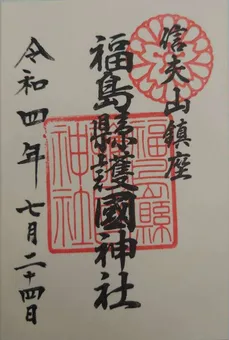 信夫山鎮座
福島縣護國神社
令和四年 七月二十四日
福島縣
神社